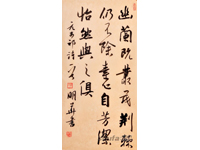 幽蘭既叢茂荆棘
仍不除素心自芳潔
怡然與之俱